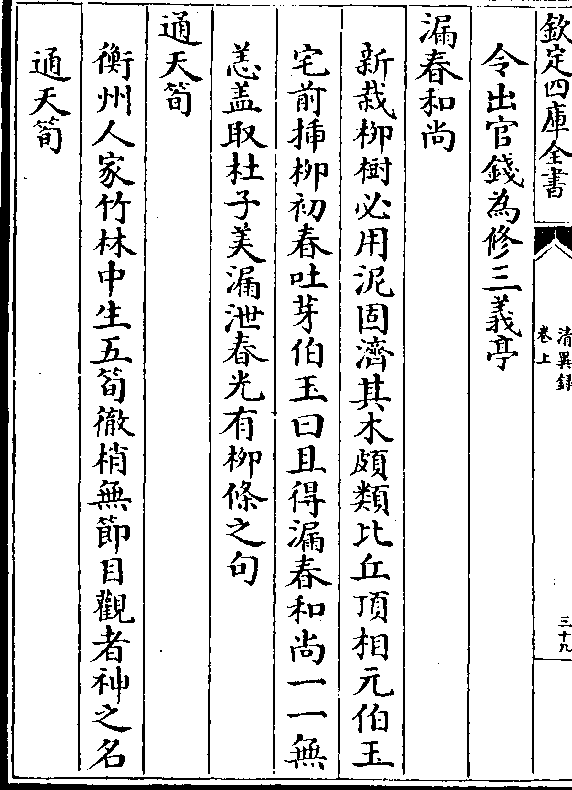 欽定四庫全書
清異録
卷上
三十九
令出官錢為修三義亭
漏春和尚
新栽栁樹必用泥固濟其木頗類比丘頂相元伯玉
宅前揷栁初春吐芽伯玉曰且得漏春和尚一一無
恙盖取杜子美漏泄春光有栁條之句
通天筍
衡州人家竹林中生五筍徹梢無節目觀者神之名
通天筍